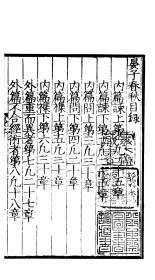 晏子春秋目錄
内篇諫上第一凡二十五章
内篇諫下第二凡二十五章
内篇問上第三凡三十章
内篇問下第四凡三十章
内篇襍上第五凡三十章
内篇襍下第六凡三十章
外篇重而異者第七凡二十七章
外篇不合經術者第八凡十八章